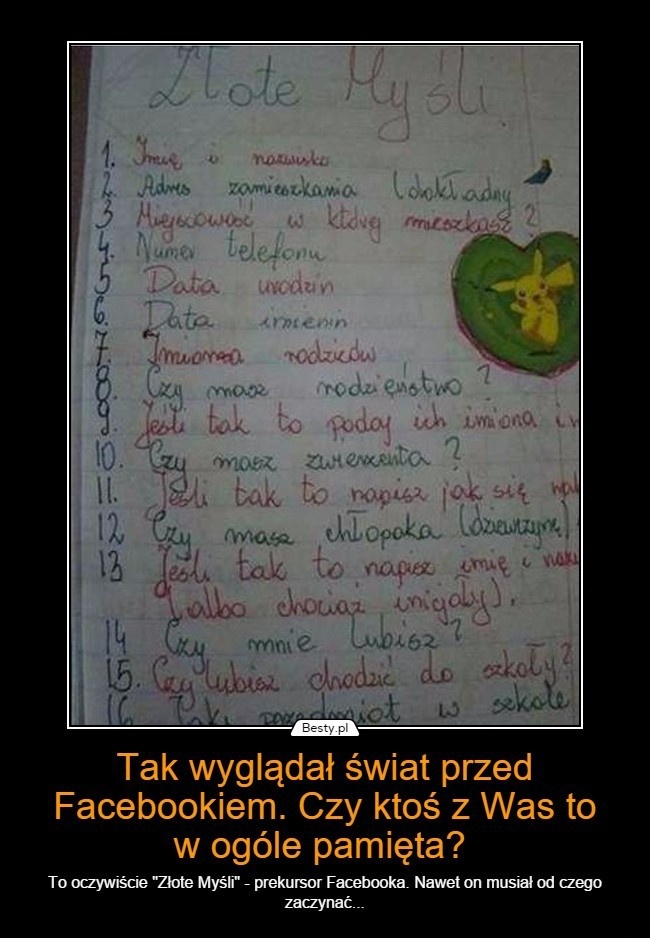 Złote Myśli
1. Imię i nazwisko
2. Adres zamieszkania (dokładny
3 Miejscowość w której mieszkasz?
4. Numer telefonu
5 Data urodzin
6. Data imienin
7. Imiona rodziców
8. Czy masz rodzieństwo?
9. Jeśli tak to podaj ich imiona i
10. Czy masz zwierzenta?
11. Jeśli tak to napisz jak się
12 Czy masz chłopaka (dziewczynę)
13 Jeśli tak to napisz imię i
(albo chociaż inicjały).
14 Czy mnie lubisz?
15. Czy lubisz chodzić do szkoły?
16 Jaki przedmiot w szkole
Besty.pl
Tak wyglądał świat przed
Facebookiem. Czy ktoś z Was to
w ogóle pamięta?
To oczywiście "Złote Myśli" - prekursor Facebooka. Nawet on musiał od czego
zaczynać...